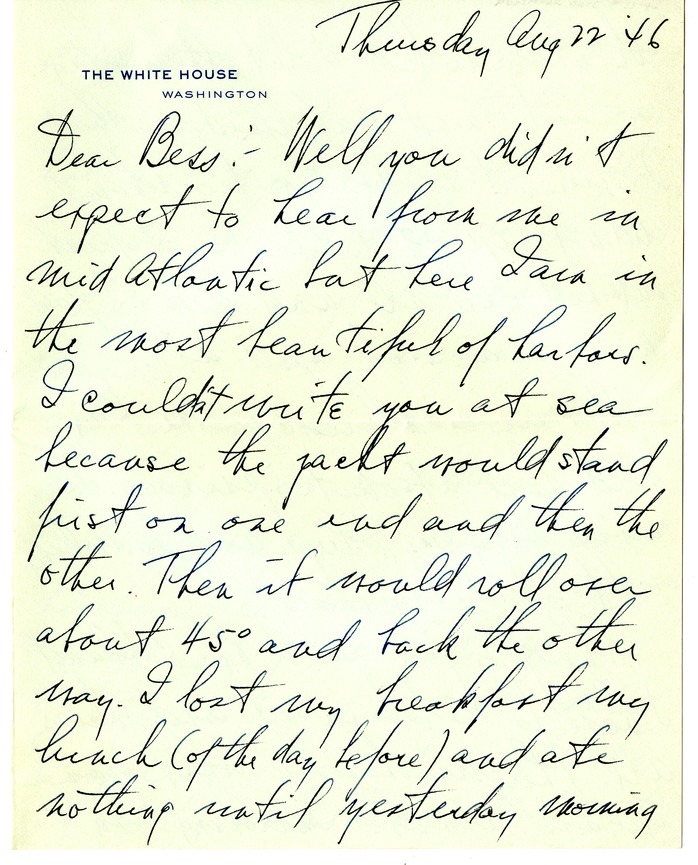 Thursday Aug 22 '46
THE WHITE HOUSE
WASHINGTON
Dear Bess:- Well you didn't
expect to hear from me in
mid Atlantic but here I am in
the most beautiful of harbors.
I couldn't write you at sea
because the yacht would stand
first on one end and then the
other. Then it would roll over
about 45° and back the other
way. I lost my breakfast my
lunch (of the day before) and ate
nothing until yesterday morning